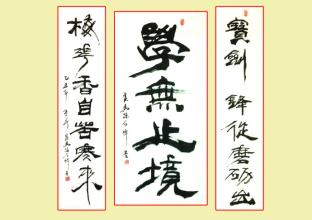 寶劍鋒從磨砺出
學無止境
梅花香自苦寒来